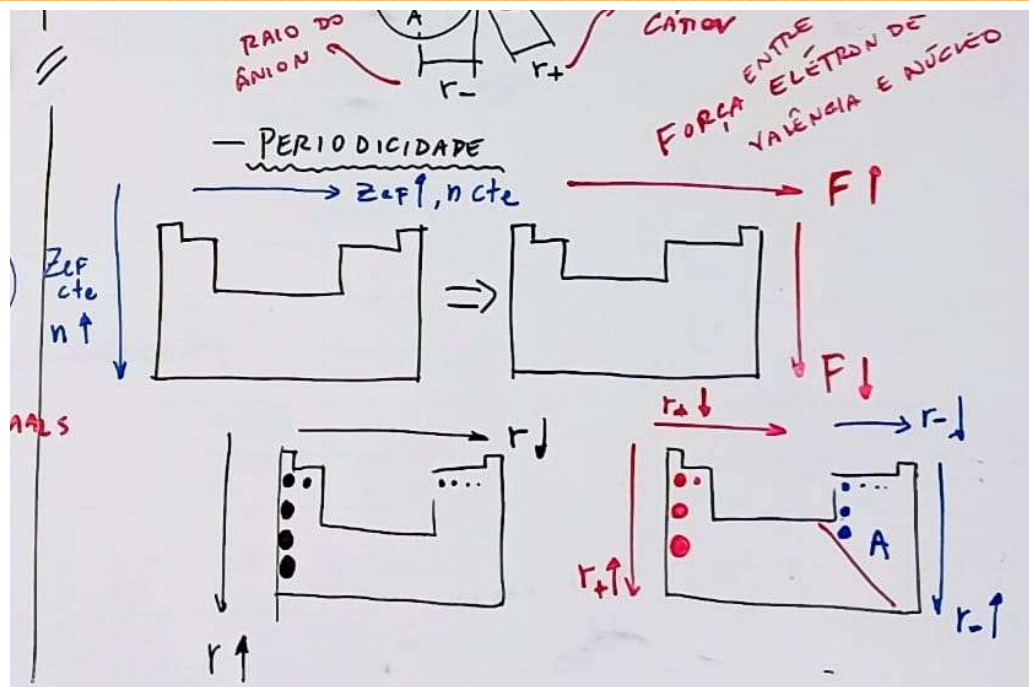 A
RAIO DO
ÂNION
r-
r+
CÁTION
FORÇA ENTRE
ELÉTRON DE
VALÊNCIA E NÚCLEO
— PERIODICIDADE
Zef↑, n cte
F↑
Zef
cte
n↑
⇒
F↓
r↓
r↑
r+↓
r-↓
r+↑
A
r-↑